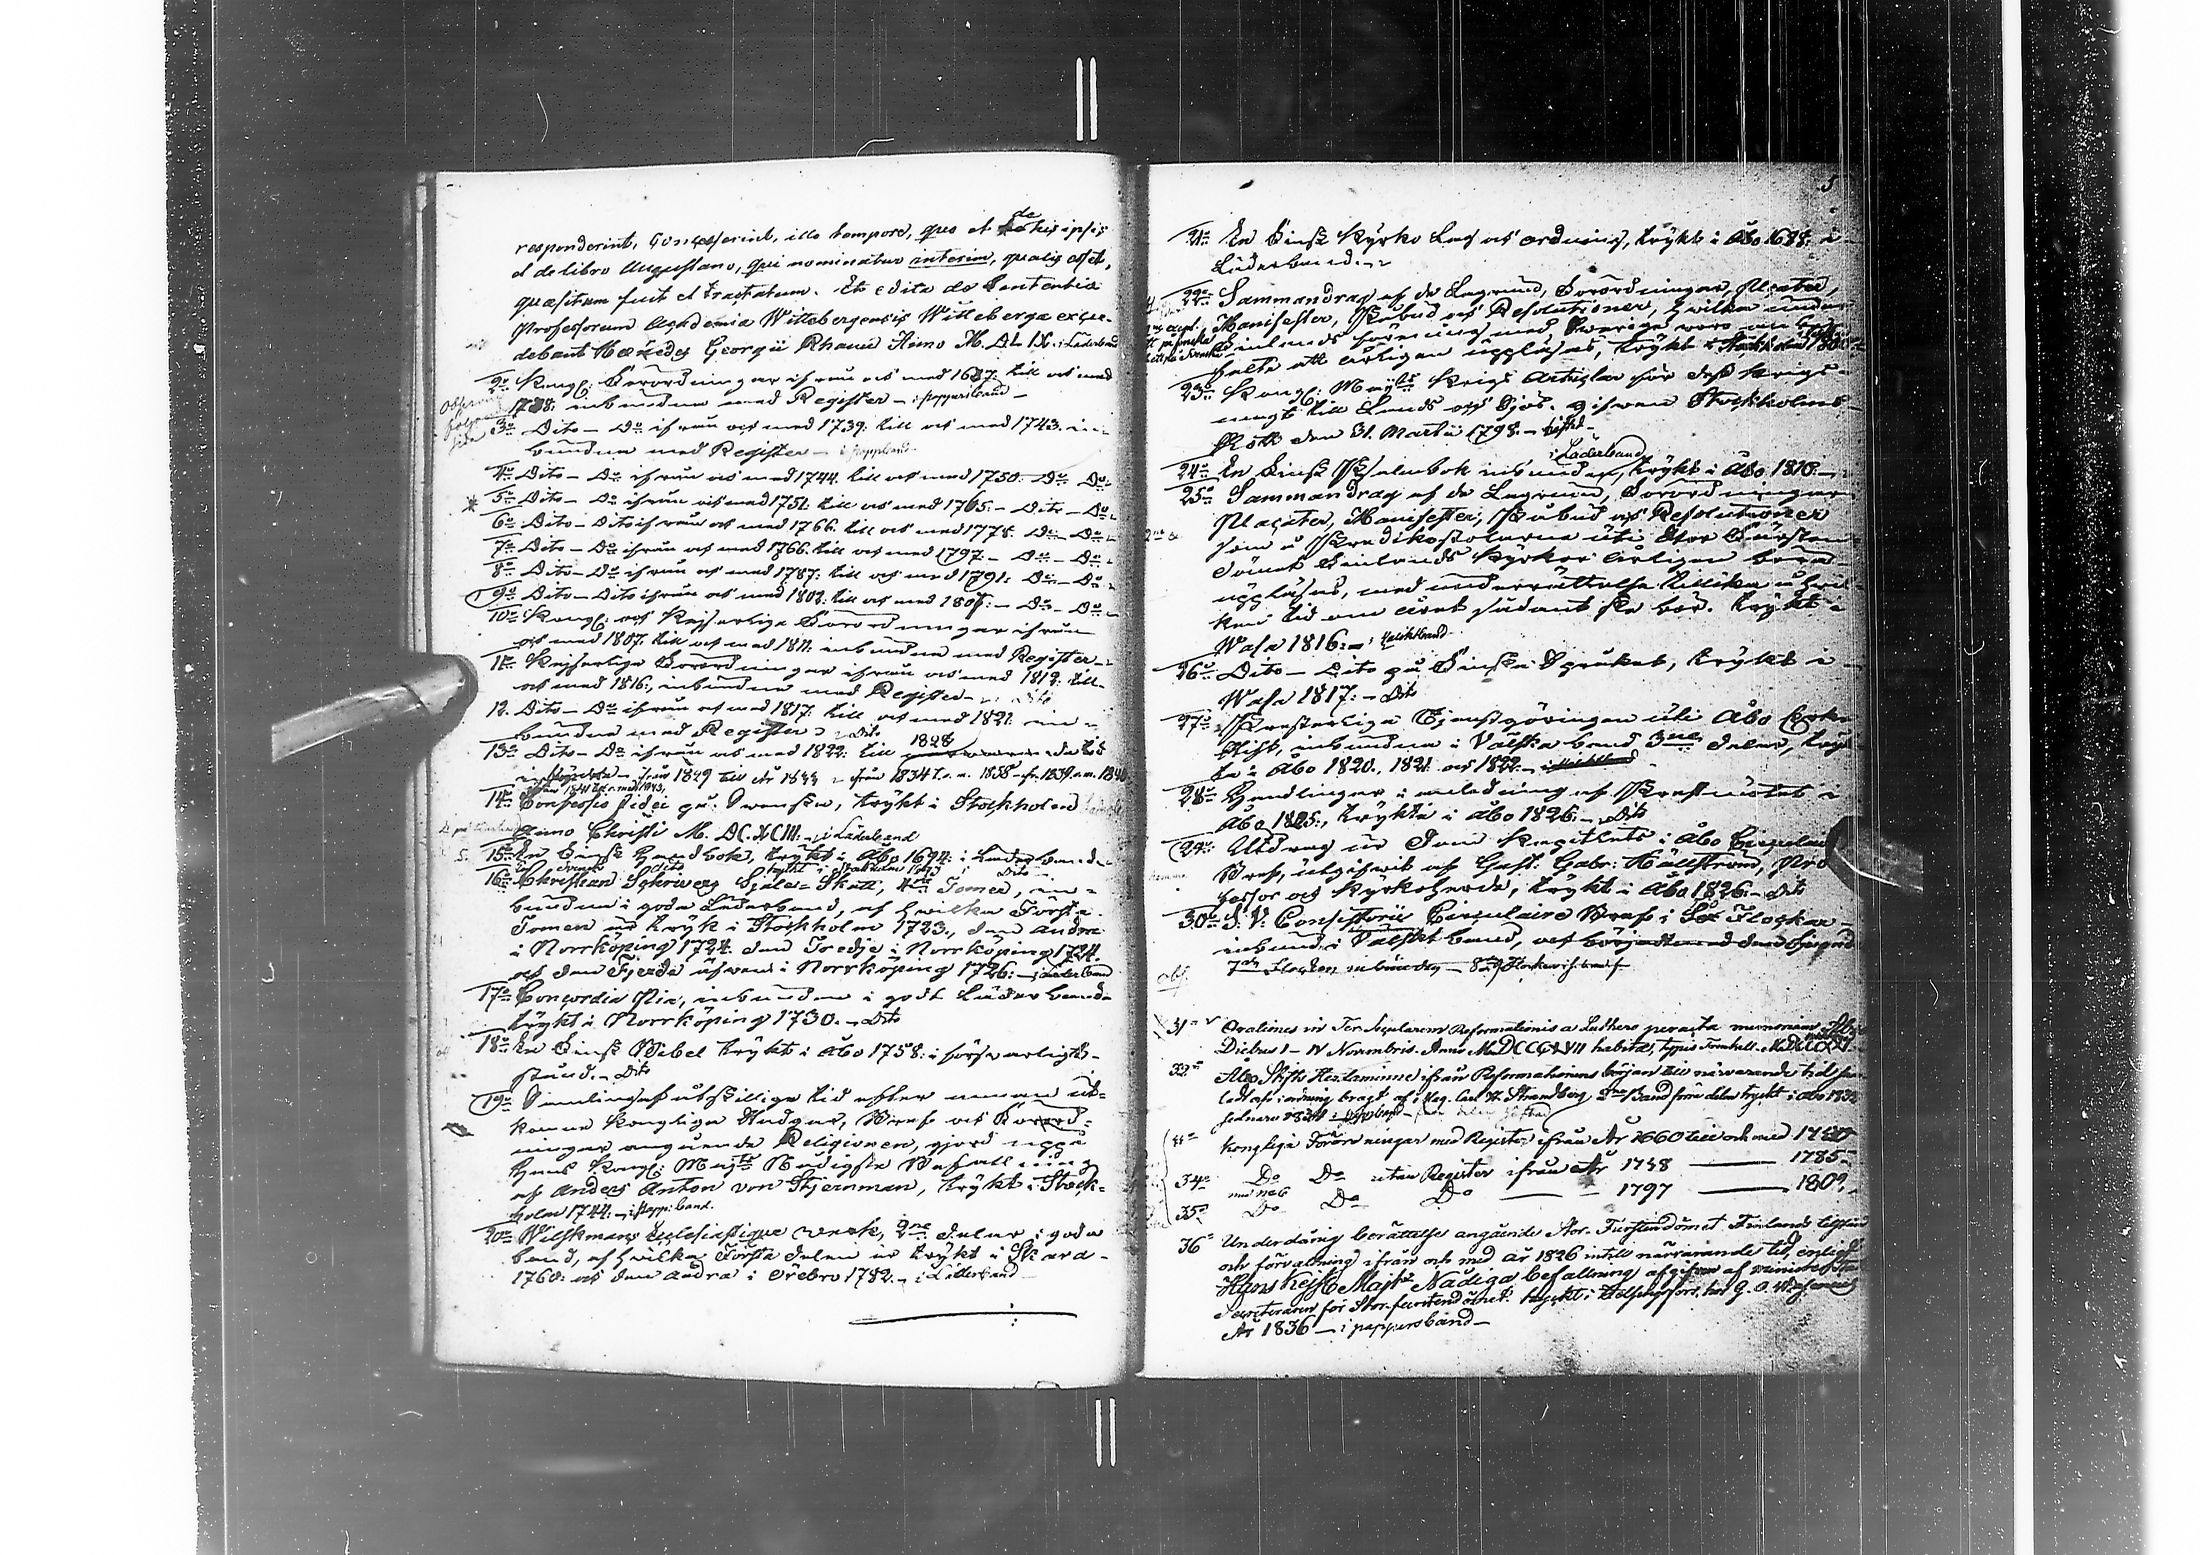 responderint, Gonçesserint, illo tempore, quo et de his ipsis
et de libro Augustano, qui nominatur interim, qualis esset,
quæsitum fuit et tractatum. Et edita de Sententia
Professorum Academia Wittebergensis Witteberga excu-
debant Hæredes Georgii Rhauu Anno M.DLIX. i Läderband
2o Kongl: Förordningar ifrån och med 1687. till och med
1738: inbundna med Register - i pappersband -
3o Dito - Do ifrån och med 1739. till och med 1743. in-
bundna med Register - i pappband
4o Dito - Do ifrån och med 1744. till och med 1750. Do Do
5o Dito - Do ifrån och med 1751. till och med 1765. - Dito - Do
6o Dito - Dito ifrån och med 1766. till och med 1778. Do - Do
7o Dito - Do ifrån och med 1766. till och med 1797 - Do - Do
8o Dito - Do ifrån och med 1787: till och med 1791: Do - Do
9o Dito - Dito ifrån och med 1802: till och med 1806: - Do - Do
10o Kongl: och Kejserliga Förordningar ifrån
och med 1807. till och med 1811: inbundna med Register
11o Kejserliga Förordningar ifrån och med 1812: till
och med 1816., inbundna med Register - Dito
12. Dito - Do ifrån och med 1817: till och med 1821: in-
bundna med Register - Dito
13o Dito - Do ifrån och med 1822: till 1828
från 1829 till År 1833 - från 1834 t.o.m. 1838 - fr. 1839 o.m. 1840
14o Confessio fidei på Svenska, trykt i Stockholm
Anno Christi M.DC.XCIII: - i Läderband
15o En Finsk Handbok, trykt i Åbo 1694: i Läderband
En Svensk dito trykt i Stockholm 1693 i Dito
16o Christian Scrivers Själa-Skatt, 4ra Tomer, in-
bundna i goda Läderband, af hvilka Första
Tomen är tryk i Stockholm 1723., den andra
i Norrköping 1724. den Tredje i Norrköping 1724.
och den Fjerde äfven i Norrköping 1726: - i Läderband
17o Concordia Pia, inbunden i godt Läderband
trykt i Norrköping 1730. - Dito
18o En Finsk Bibel trykt i Åbo 1758: i försvarligt
stånd. - Dito
19o Samling af utskilliga tid efter annan ut-
komne Kongliga Stadgar, Bref och Förord-
ningar angående Religionen, gjord uppå
Hans Kongl: Majts Nådigste Befallning
af Anders Anton von Stjernman, trykt i Stock-
holm 1744: - i papp: band.
20o Wilskmans Ecclesiastique verk, 2ne delar i goda
band, af hvilka Första delen är trykt i Skara
1760: och den andra i Örebro 1782. - i Läderband
21o En Finsk Kyrko Lag och ordning, trykt i Åbo 1688: i
Läderband.
22o Sammandrag af de Lagrum, Förordningar, Placater,
Manifester, Påbud och Resolutioner, hvilka under
Finlands förening med Sverige voro an be-
falte att årligen uppläsas, trykt i
23o Kongl: Majts Krigs Artiklar för dess Krigs-
magt till Lands och Sjös. gifven Stockholms
Slott den 31. Martii 1798. - häftet -
24o En Finsk Psalmbok inbunden i Läderband, trykt i Åbo 1810.
25o Sammandrag af de Lagrum, Förordningar
Placater, Manifester, Påbud och Resolutioner
som å Predikostolarna uti Stor Fursten-
dömet Finlands Kyrkor årligen böra
uppläsas, med underrättelse tillika å hvil-
ken tid om året sådant ske bör. trykt i
Wasa 1816: - i hälftband
26o Dito - Dito på Finska Språket, trykt i
Wasa 1817: - Dito
27o Presterliga Tjenstgöringen uti Åbo Erke
Stift, inbundna i Välska band 3ne delar, tryk-
ta i Åbo 1820., 1821. och 1822. -
28o Handlingar i anledning af Prestmötet i
Åbo 1825., trykta i Åbo 1826. - Dito
29o Utdrag ur Dom Kapitlets i Åbo Circulair
Bref, utgifvit af Gust. Gabr: Hällström, Pro-
fessor och Kyrkoherde, trykt i Åbo 1826. - Dito
30o S: V: Consistorii Circulaire Bref i Sex Flockar
inbund: i Välskt band, och börjadt med den
7de Flocken inbunden - 8 och 9 Flocken
31o Orationes in Ter. Secularem Reformationis a Luthero peracta memoriam
Diebus I - IV Novembris. Anno MDCCCXVII habitæ, typis Frenckell.
32o Åbo Stifts Herdaminne ifrån Reformationens början till närvarande tid
ledt och i ordning bragt af Mag. Carl H. Strandberg. förra delen trykt i Åbo 1832
sednare 1834 i
Kongliga Förordningar med Register ifrån År 1660 till och med
34o Do Do utan Register ifrån År 1748 — 1785
35o Do Do Do — 1797 — 1802
36o Underdånig berättelse angående Stor-Furstendömet Finlands tillstånd
och förvaltning ifrån och med år 1826 intill närvarande tid, enligt
Hans Kejserl. Majts Nådiga befallning afgifven af ministerstats
Secreteraren för Stor-furstendömet. tryckt i Helsingfors, hos G. O. Wasenius
År 1836 - i pappersband -